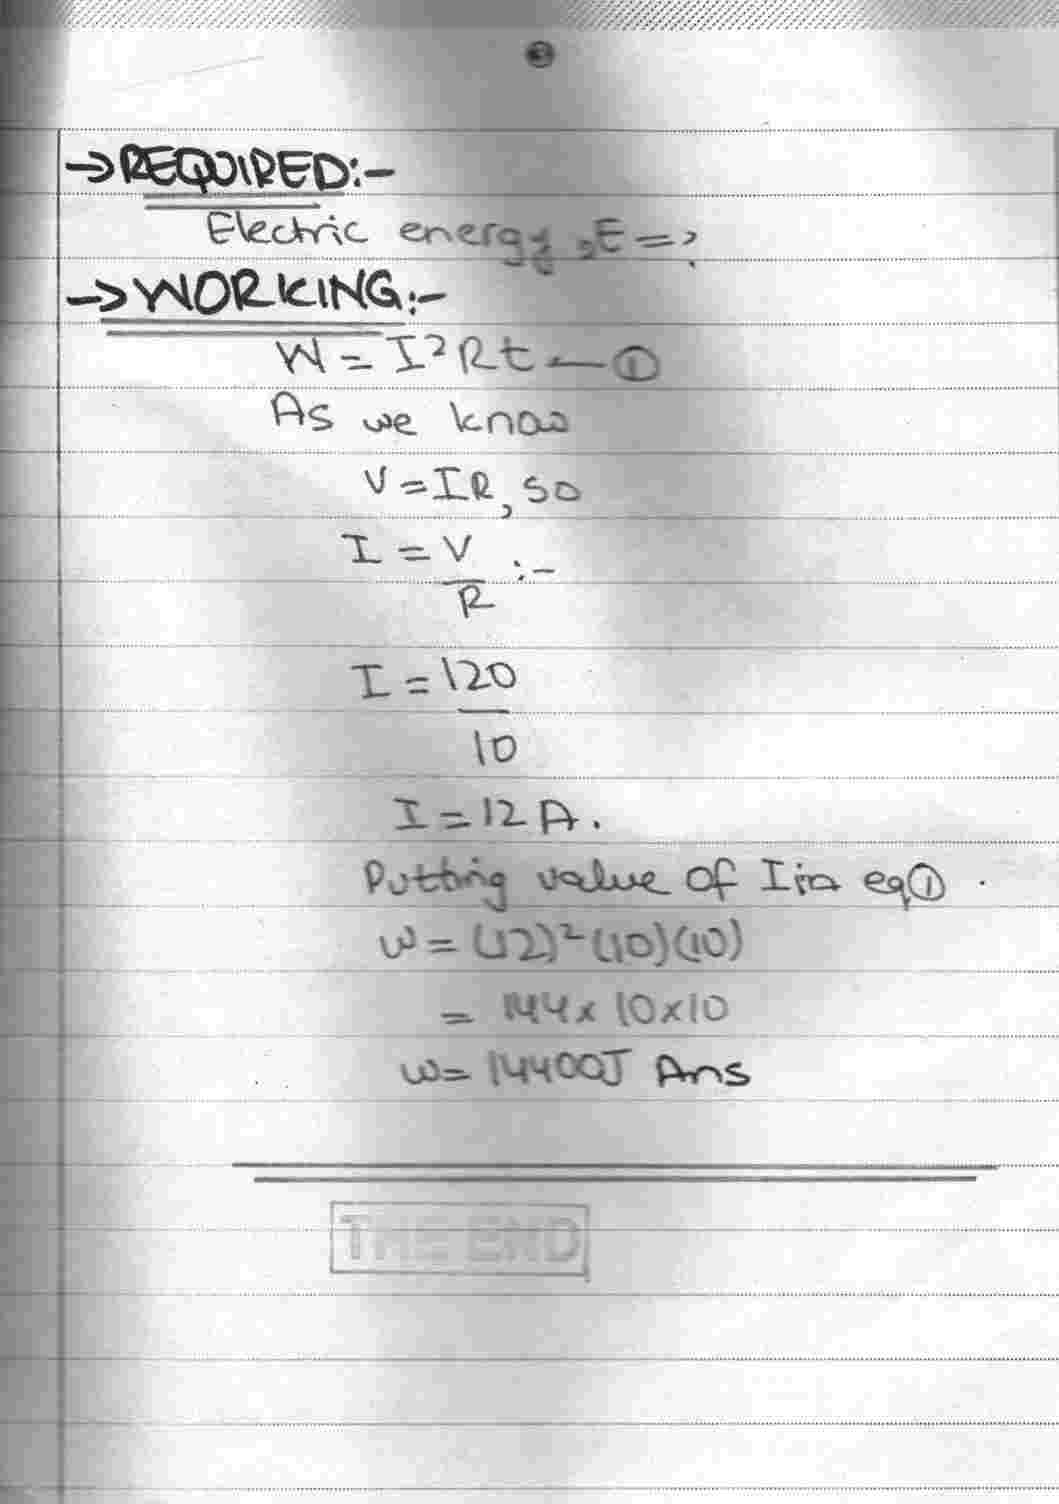 3
→REQUIRED:-
Electric energy, E=?
→WORKING:-
W = I²Rt — ①
As we know
V=IR, so
I = V/R :-
I = 120/10
I = 12 A.
Putting value of I in eq① .
W = (12)² (10)(10)
= 144 x 10x10
W= 14400J Ans
THE END